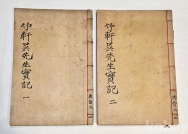 竹軒吳先生實記 一
竹軒吳先生實記 二